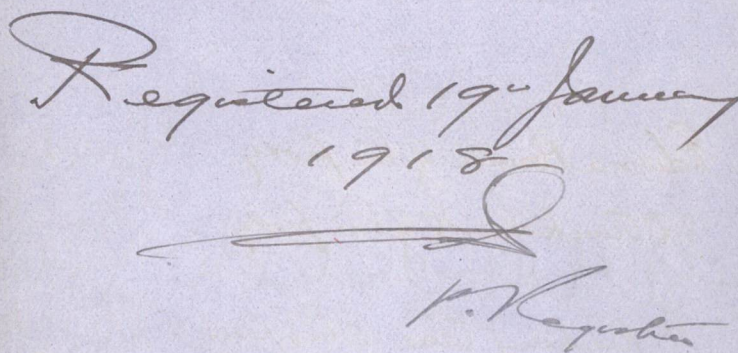 Registered 19th January
1918
p. Registrar